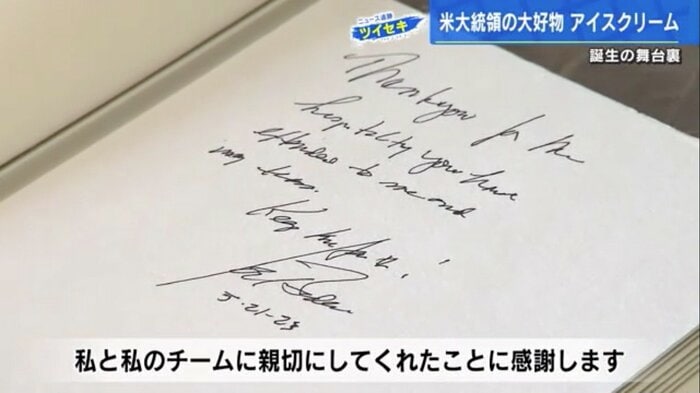 ニュース追跡
ツイセキ
米大統領の大好物 アイスクリーム
誕生の舞台裏
Thank you for the
hospitality you have
extended to me and
my team.
Keep the faith!
Joe Biden
5-21-23
私と私のチームに親切にしてくれたことに感謝します